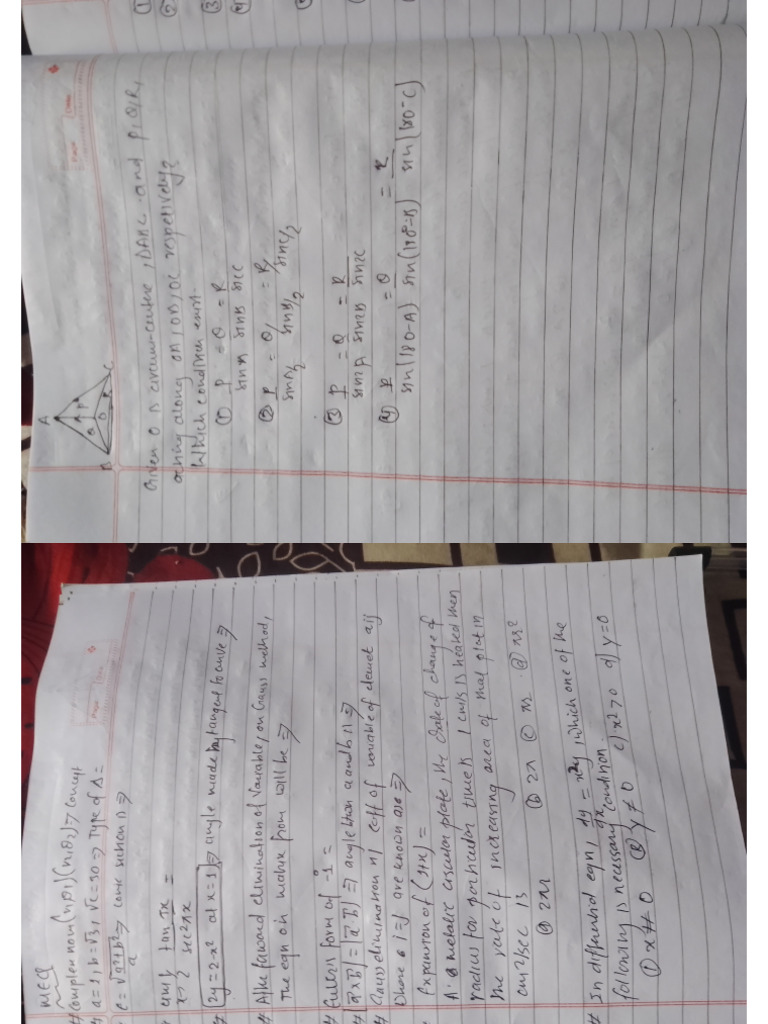 MCQ
Complex nom (r₁θ₁)(r₂,θ₂) ⇒ concept
a = 1, b = √3, √c = 30 ⇒ Type of Δ =
e = √a²+b² / a ⇒ conic section is ⇒
limit x→2 tan πx / sec2πx =
2y = 2-x² at x = 1 ⇒ angle made by tangent to curve ⇒
After forward elimination of Variable, on Gauss method,
The eqn on matrix from will be ⇒
Euler's form of -1 =
|a×b| = |a·b| ⇒ angle than a and b is ⇒
Gauss elimination of coff of variable of elemet aij
Dhone i = j are known as ⇒
Expansion of (1+x) =
A metalic circular plate, the rate of change of
radius for particular time is 1 cm/s is heated then
the rate of increasing area of that plat in
cm²/sec is
ⓐ 2πr ⓑ 2π ⓒ πr ⓓ πr²
In differential eqn, dy/dx = x²y, which one of the
following is necessary condition.
① x ≠ 0 ② y ≠ 0 c) x² > 0 d) y = 0
Page
Date
A
Q P
O R
B C
Given O is circum-centre, ΔABC and P, Q, R,
acting along OA, OB, OC respetively?
Which condition exist.
① P/sinA = Q/sinB = R/sinC
② P/sinA/2 = Q/sinB/2 = R/sinC/2
③ P/sin2A = Q/sin2B = R/sin2C
④ P/sin(180-A) = Q/sin(180-B) = R/sin(180-C)
Page
Date
①
②
③
④